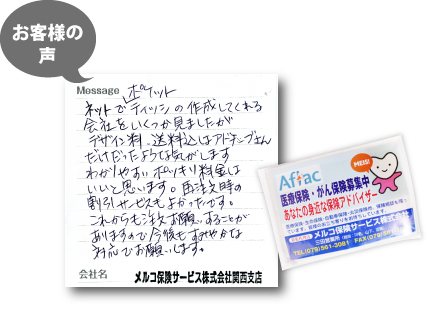 お客様の
声
Message
ポケット
ネットでティッシュの作成してくれる
会社をいくつか見ましたが
デザイン料、送料込はアドチップさん
だけだったような気がします
わかりやすいポッキリ料金は
いいと思います。再注文時の
割引サービスもよかったです。
これからも注文お願いすることが
ありますので今後もすみやかな
対応でお願いします。
会社名 メルコ保険サービス株式会社関西支店
Aflac
MEIS!
医療保険・がん保険募集中
あなたの身近な保険アドバイザー
メルコ保険サービス株式会社
TEL(079)561-3081 FAX(079)